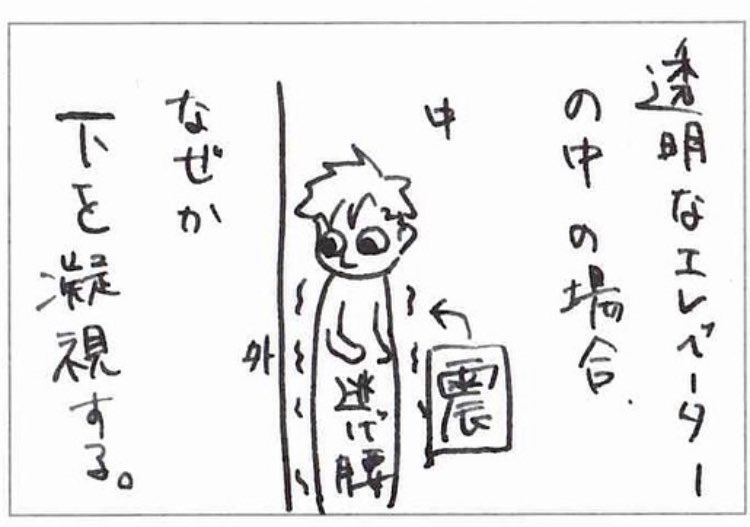 透明なエレベーター
の中の場合.
中
震
逃げ腰
外
なぜか
下を凝視する。